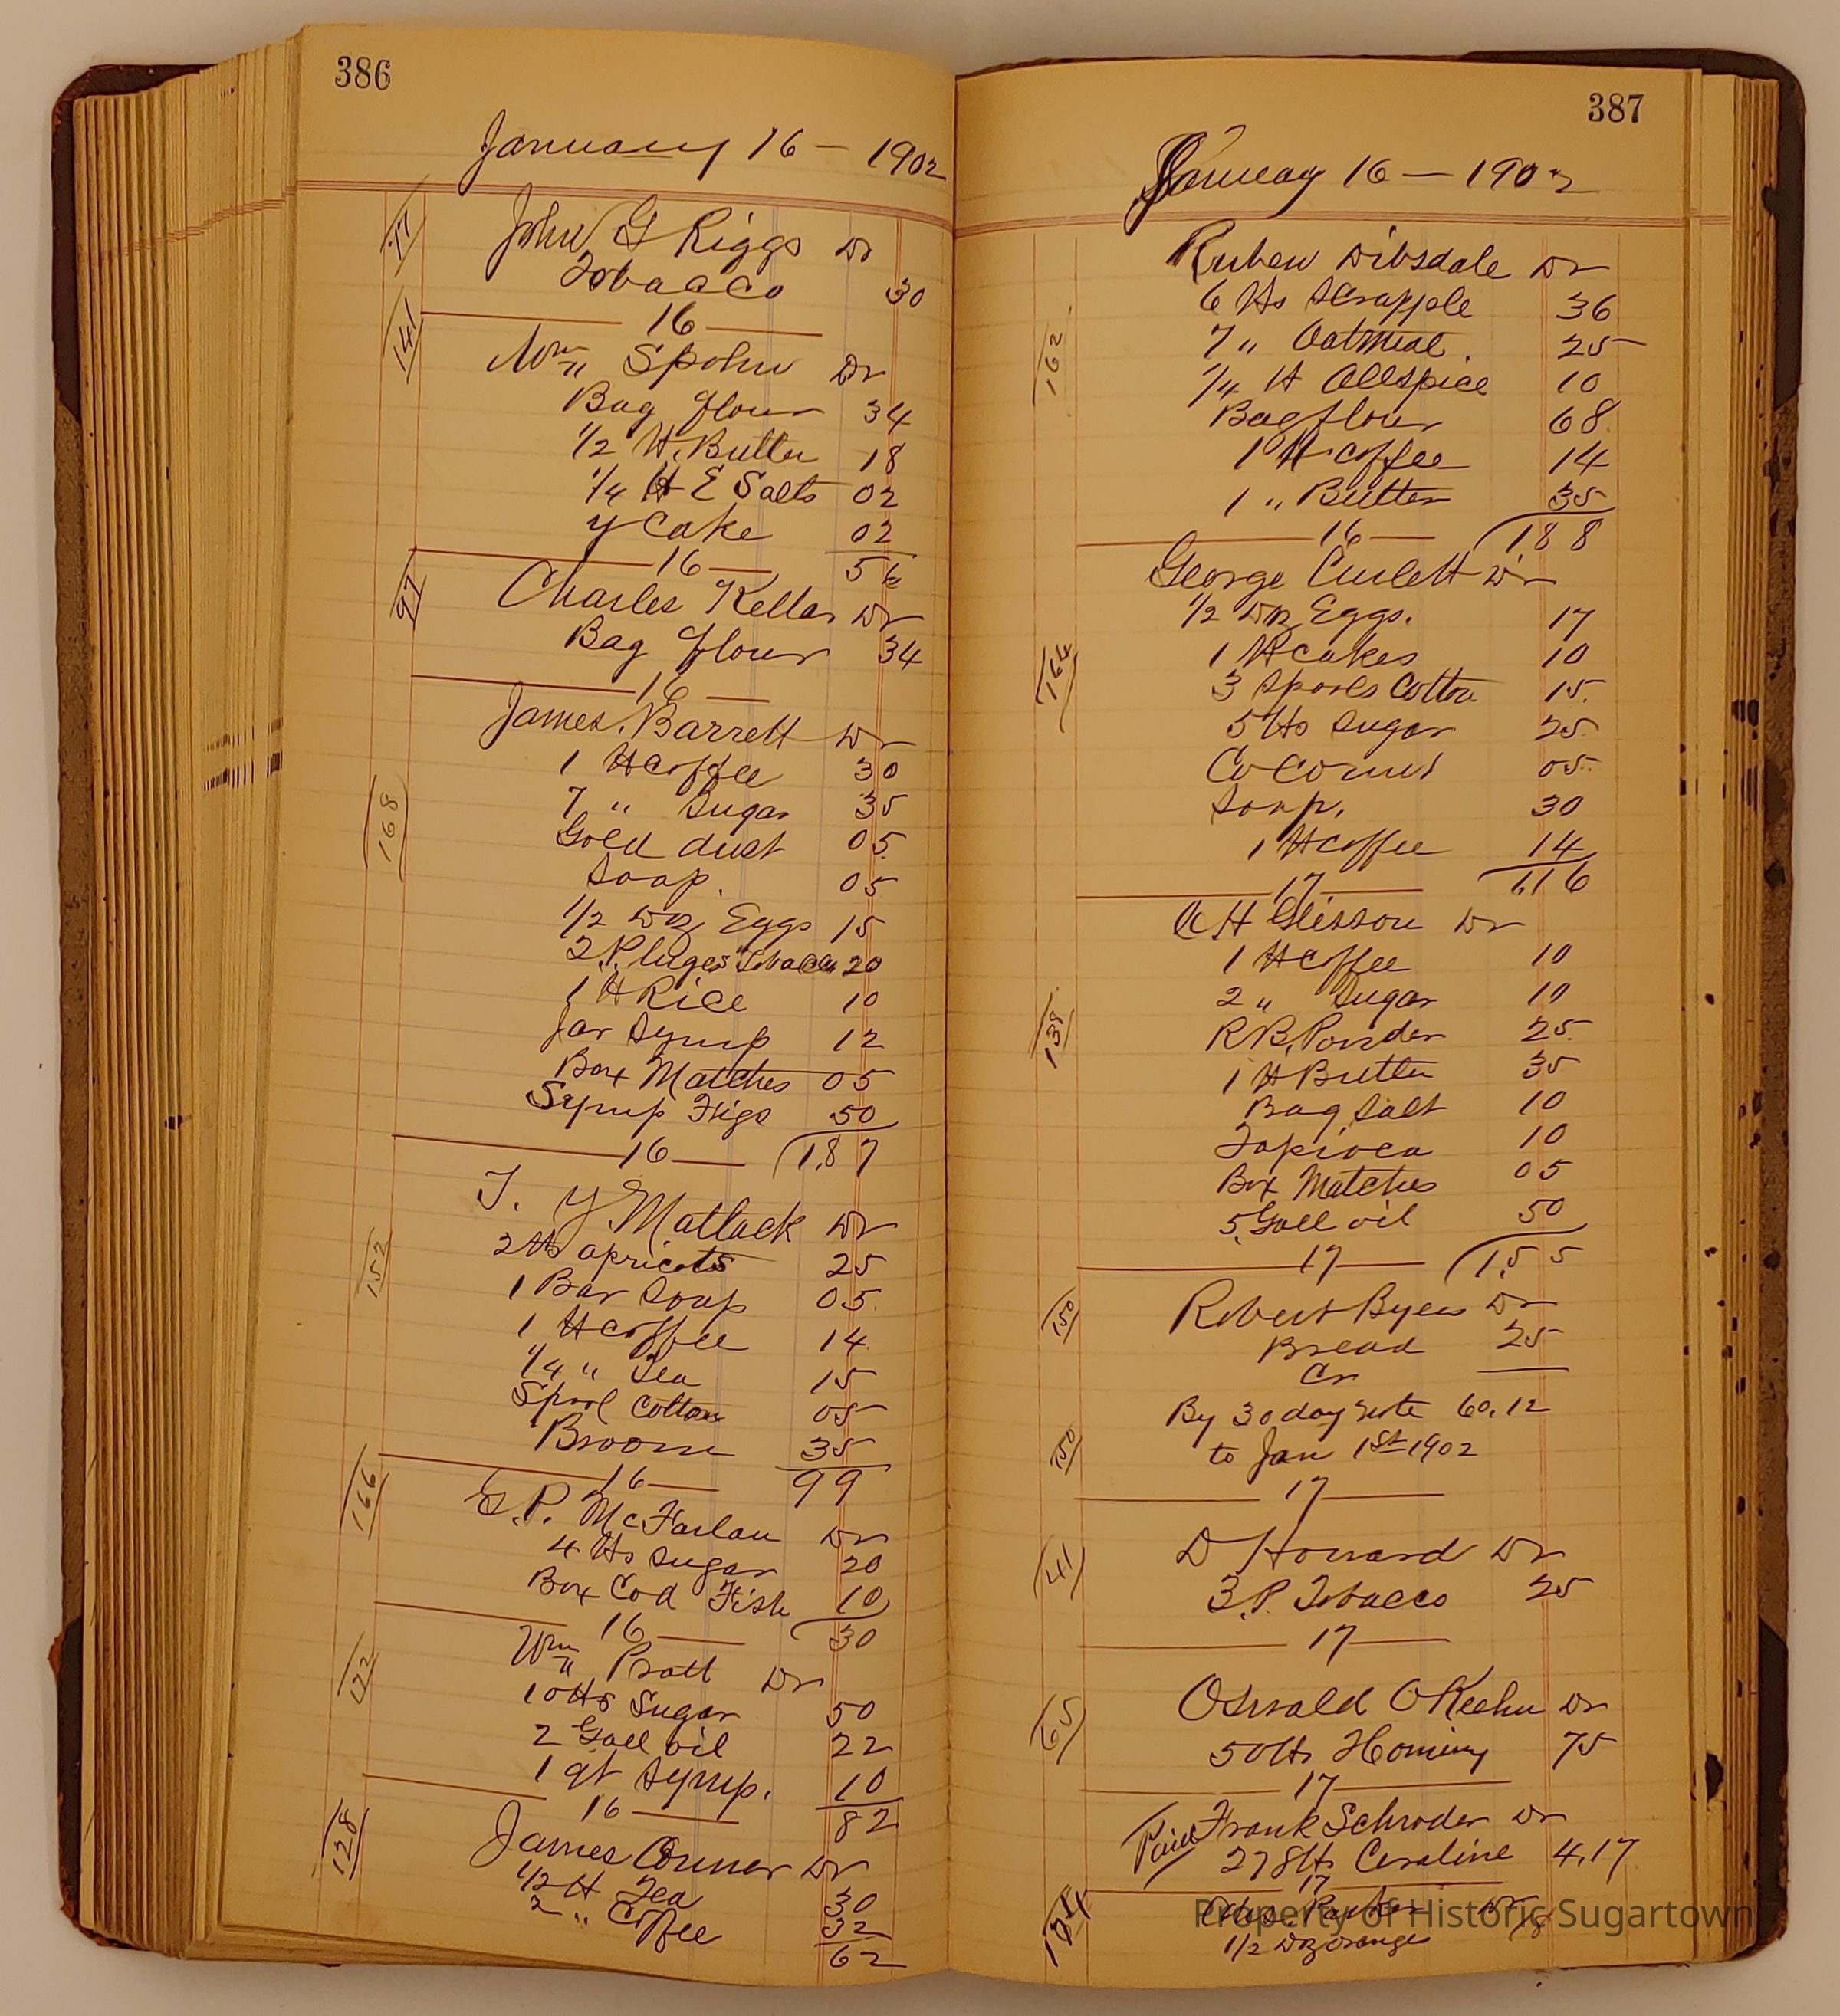 386
January 16 — 1902
77
John G Riggs Dr
Tobacco 30
16
141
Wm Spohn Dr
Bag flour 34
1/2 lb. Butter 18
1/4 lb E Salts 02
y Cake 02
16 56
97
Charles Keller Dr
Bag flour 34
16
James Barrett Dr
1 lb Coffee 30
7 " Sugar 35
168
Gold dust 05
Soap. 05
1/2 Doz Eggs 15
2 P.luges Tobacco 20
1 lb Rice 10
Jar Syrup 12
Box Matches 05
Syrup Figs 50
16 1.87
T. Y. Matlack Dr
152
2 lbs apricots 25
1 Bar Soap 05
1 lb coffee 14
1/4 " Tea 15
Spool Cotton 05
Broom 35
16 99
166
E.P. McFarlan Dr
4 lbs sugar 20
Box Cod Fish 10
16 30
122
Wm Pratt Dr
10 lbs Sugar 50
2 Gall oil 22
1 qt Syrup. 10
16 82
128
James Conner Dr
1/2 lb Tea 30
2 " Coffee 32
62
387
January 16 — 1902
Ruben Dibsdale Dr
6 lbs Scrapple 36
162
7 " Oatmeal. 25
1/4 lb Allspice 10
Bag flour 68
1 lb coffee 14
1 " Butter 35
16 188
George Culett Dr
1/2 Doz Eggs. 17
164
1 lb cakes 10
3 Spools Cotton 15
5 lbs Sugar 25
Cocornut 05
Soap. 30
1 lb Coffee 14
17 1.16
H Glisson Dr
1 lb Coffee 10
2 " Sugar 10
138
R B. Powder 25
1 lb Butter 35
Bag Salt 10
Tapioca 10
Box Matches 05
5 Gall oil 50
17 1.55
150
Robert Byers Dr
Bread 25
Cr
By 30 day note 60.12
150
to Jan 1st 1902
17
41
D Howard Dr
3 P. Tobacco 25
17
65
Oswald OKeehn Dr
50 lbs Hominy 75
17
Paid Frank Schroder Dr
278 lbs Ceraline 4.17
17
Parker Dr
1/2 Doz oranges
Property of Historic Sugartown